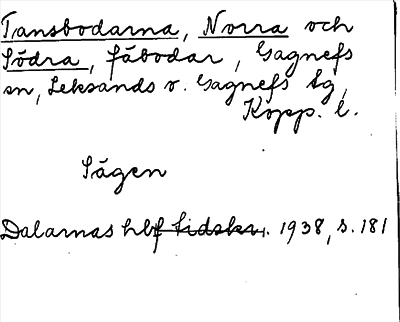 Tansbodarna, Norra och
Södra, fäbodar, Gagnefs
sn, Leksands o. Gagnefs tg,
Kopp. l.
Sägen
Dalarnas hbf tidskr. 1938, s. 181